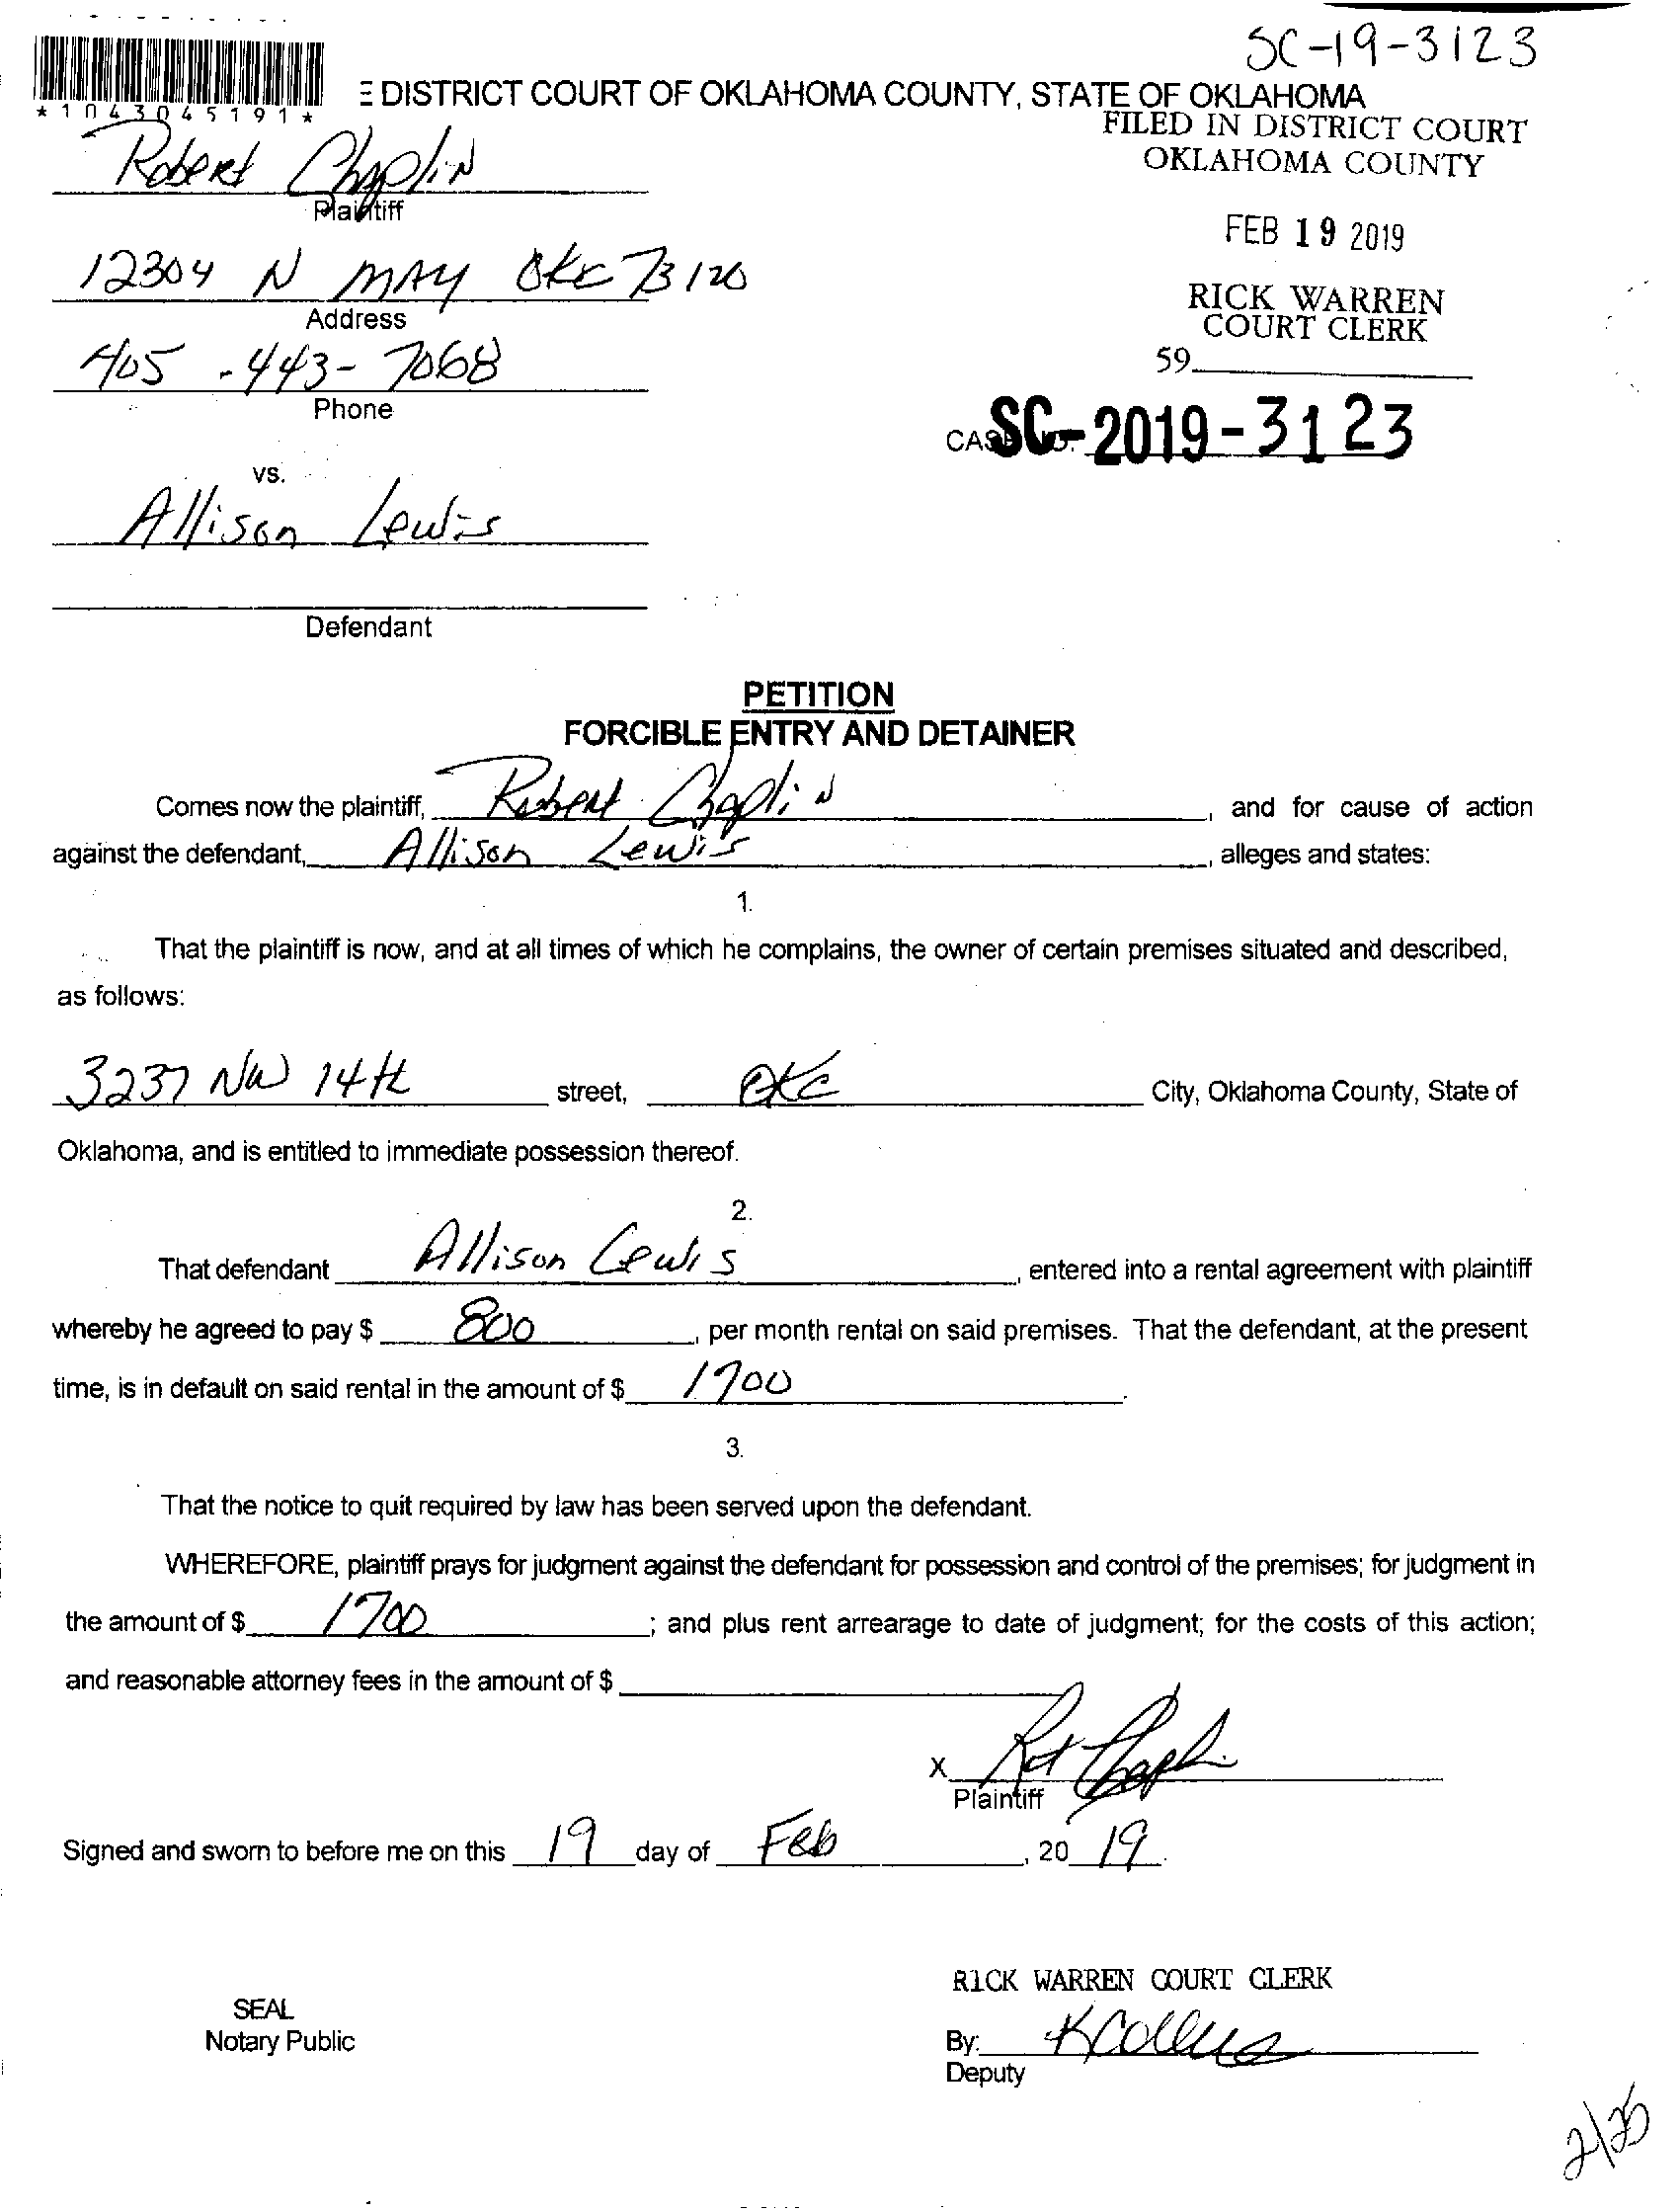 SC-19-3123
E DISTRICT COURT OF OKLAHOMA COUNTY, STATE OF OKLAHOMA
*1043045191*
FILED IN DISTRICT COURT
OKLAHOMA COUNTY
Robert Chaplin
Plaintiff
FEB 19 2019
12304 N MAY OKC 73120
Address
RICK WARREN
COURT CLERK
405-443-7068
Phone
59
CASE NO. SC-2019-3123
vs.
Allison Lewis
Defendant
PETITION
FORCIBLE ENTRY AND DETAINER
Comes now the plaintiff, Robert Chaplin, and for cause of action
against the defendant, Allison Lewis, alleges and states:
1.
That the plaintiff is now, and at all times of which he complains, the owner of certain premises situated and described,
as follows:
3237 NW 14th street, OKC City, Oklahoma County, State of
Oklahoma, and is entitled to immediate possession thereof.
2.
That defendant Allison Lewis, entered into a rental agreement with plaintiff
whereby he agreed to pay $ 800, per month rental on said premises. That the defendant, at the present
time, is in default on said rental in the amount of $ 1700.
3.
That the notice to quit required by law has been served upon the defendant.
WHEREFORE, plaintiff prays for judgment against the defendant for possession and control of the premises; for judgment in
the amount of $ 1700; and plus rent arrearage to date of judgment; for the costs of this action;
and reasonable attorney fees in the amount of $
X
Plaintiff
Signed and sworn to before me on this 19 day of Feb, 20 19.
RICK WARREN COURT CLERK
SEAL
Notary Public
By:
Deputy
2/25